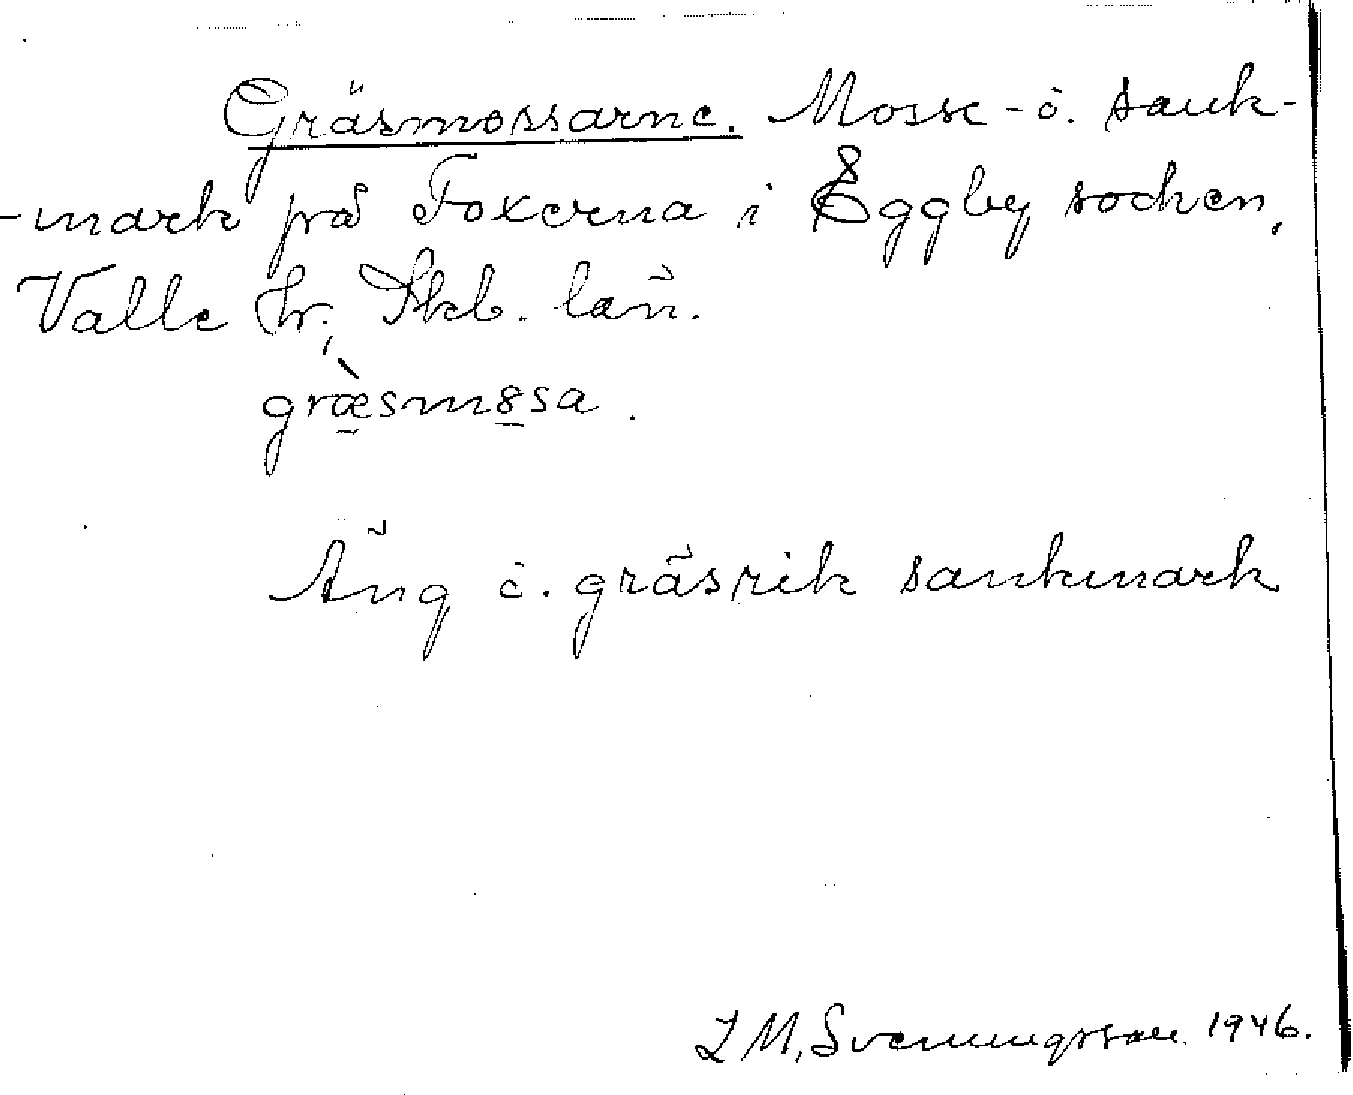 Gräsmossarne. Mosse- o. sank-
-mark på Foxerna i Eggby socken,
Valle hr, Skb. län.
græ̀sm8sa.
Äng o. gräsrik sankmark
L M, Svenningsson 1946.